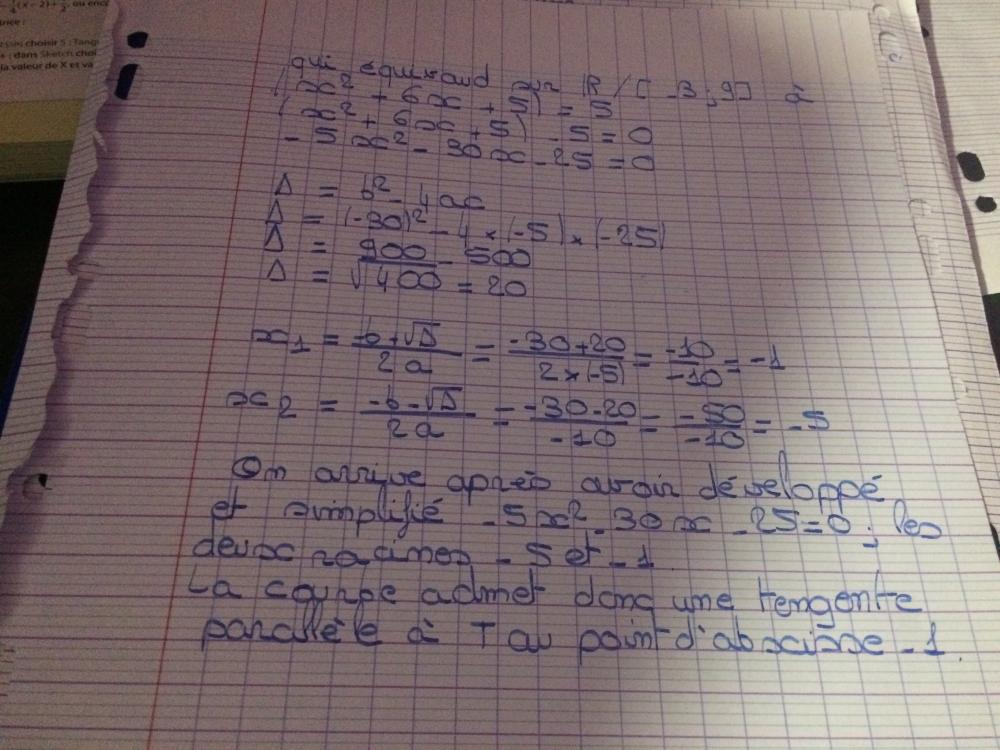 -1/4(x-2)+1/2, ou enc
trice :
choisir 5 : Tang
: dans Sketch choi
la valeur de X et va
qui équivaud sur R / [-3 ; 9] à
(x² + 6x + 5) = 5
(x² + 6x + 5) - 5 = 0
- 5x² - 30x - 25 = 0
Δ = b² - 4ac
Δ = (-30)² - 4 × (-5) × (-25)
Δ = 900 - 500
Δ = √400 = 20
x1 = -b+√Δ / 2a = -30+20 / 2×(-5) = -10 / -10 = -1
x2 = -b-√Δ / 2a = -30-20 / -10 = -50 / -10 = -5
On arrive après avoir développé
et simplifié -5x² -30x -25=0 ; les
deux racines -5 et -1
La courbe admet donc une tengente
parallèle à T au point d'abscisse -1